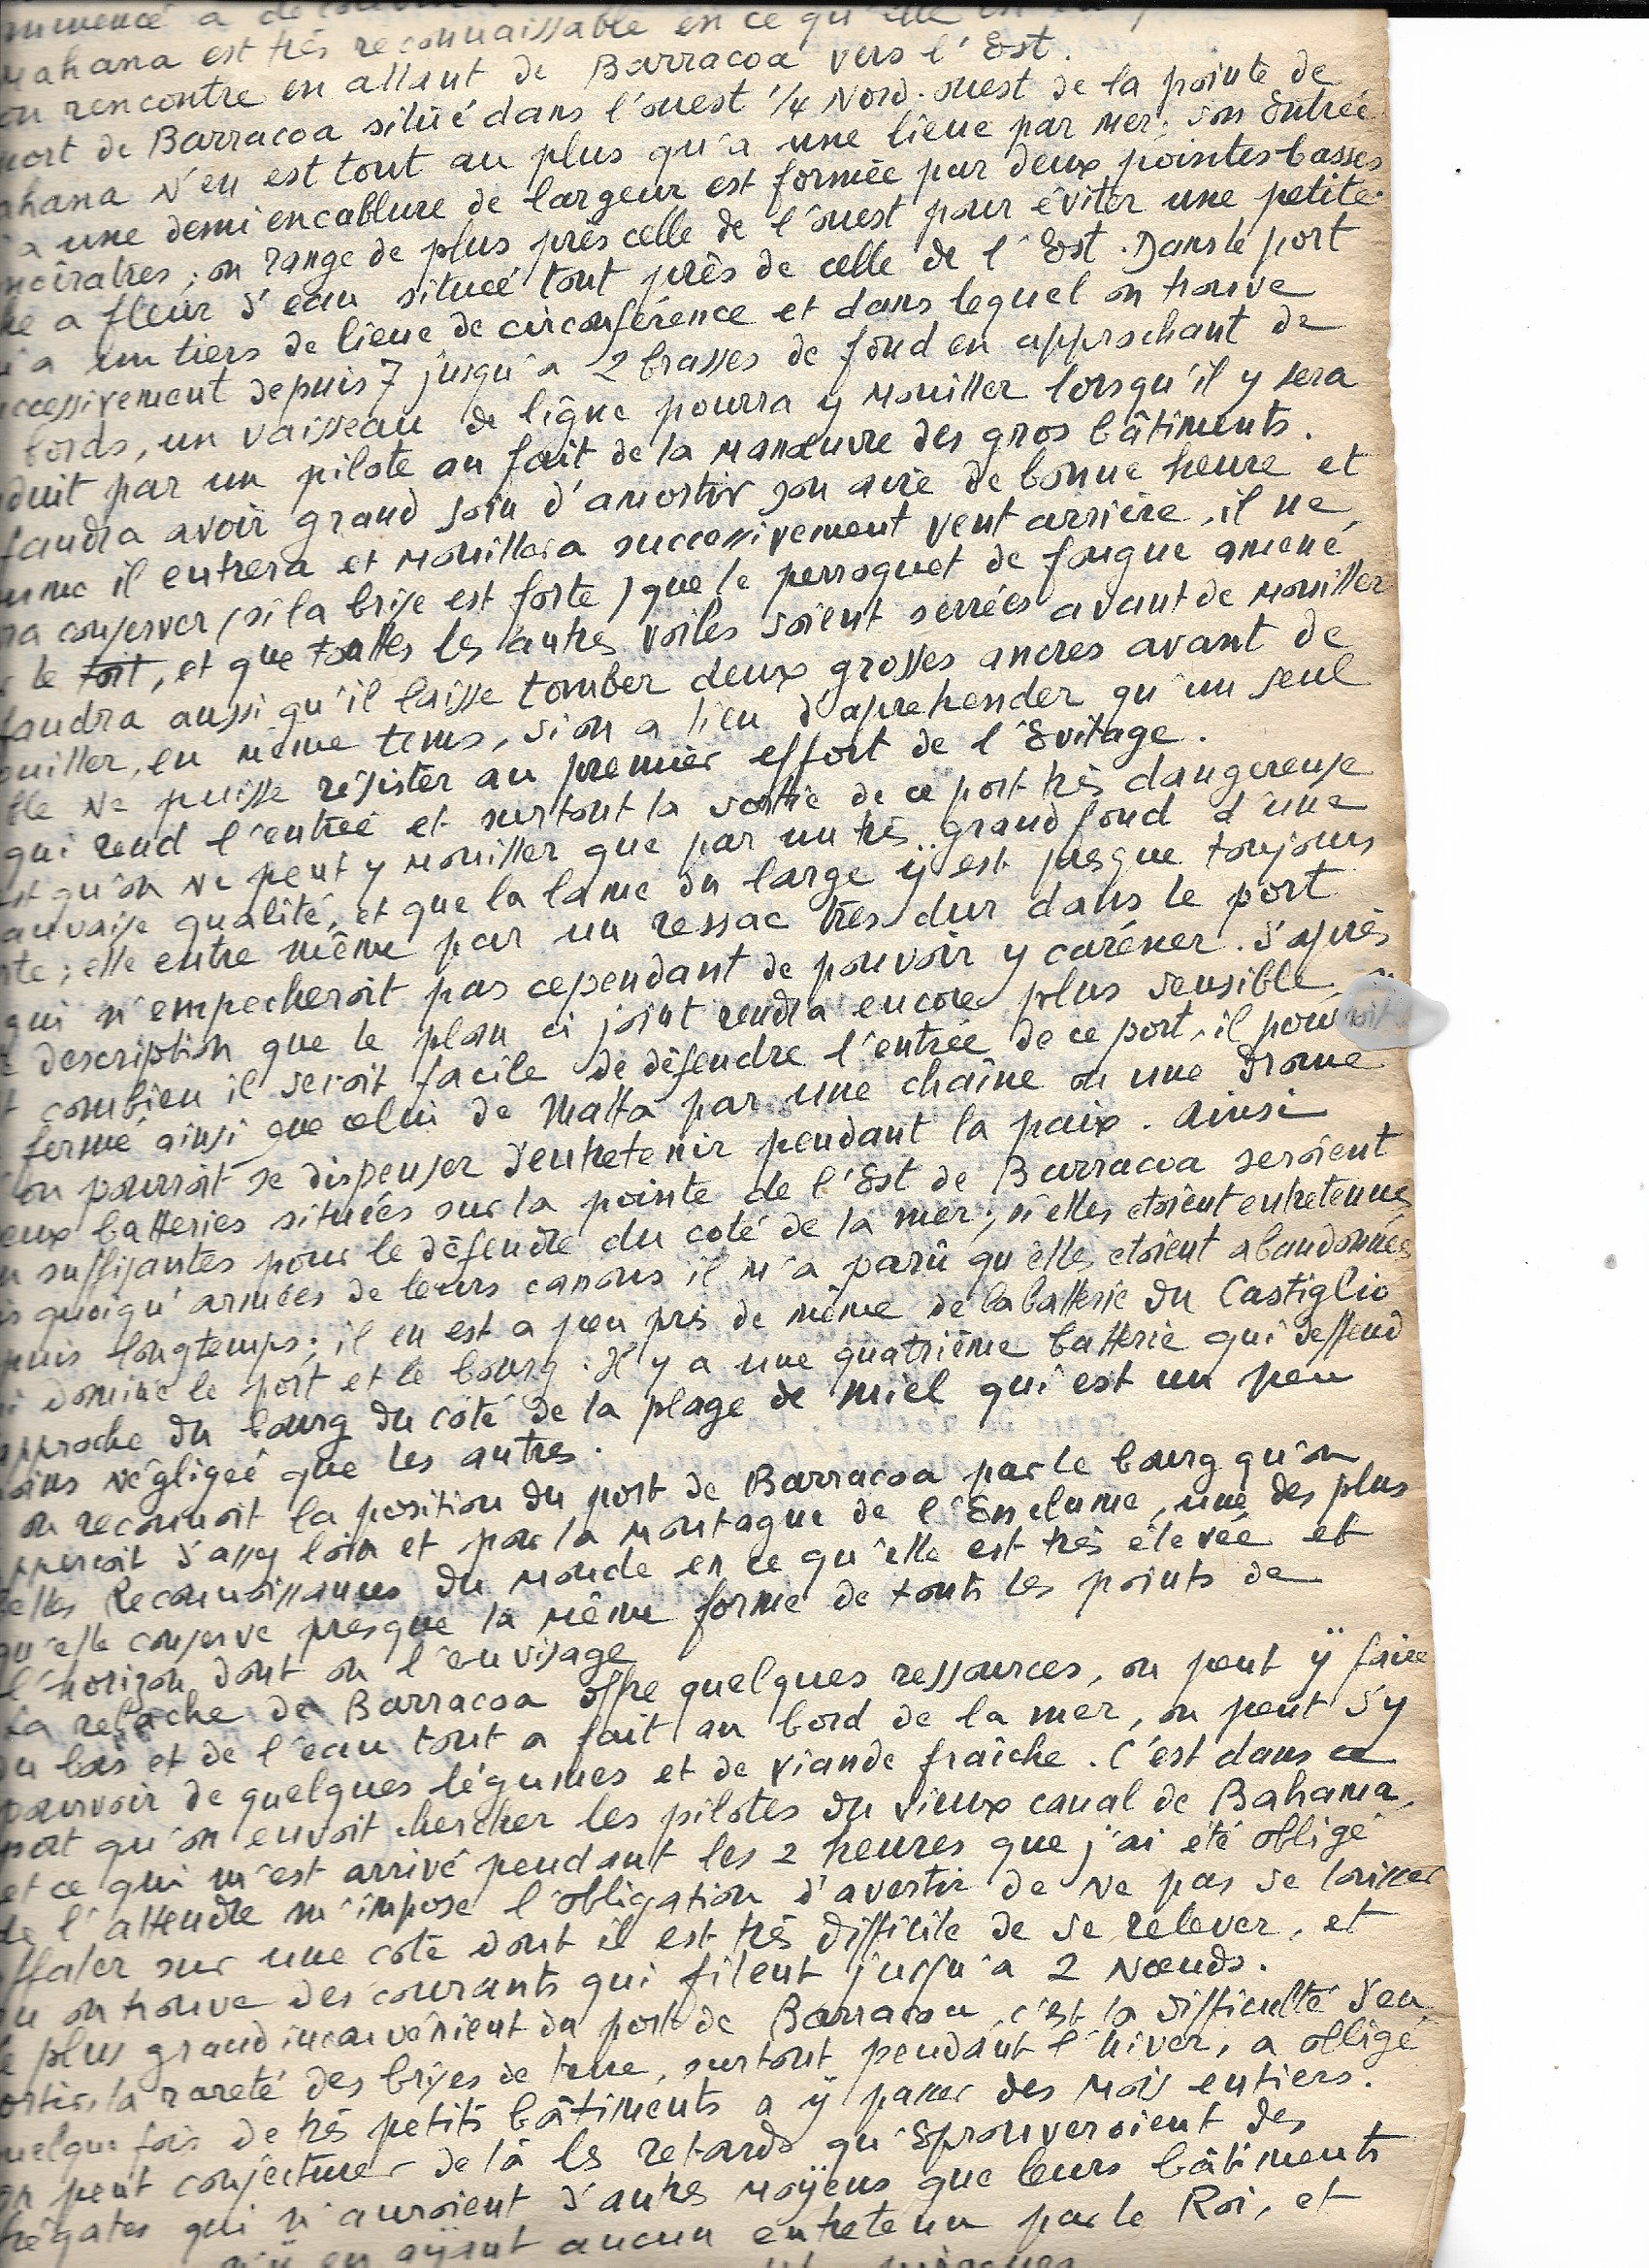 mmencé a
Mahana est très reconnaissable en ce qu'elle
on rencontre en allant de Barracoa vers l'Est.
port de Barracoa situé dans l'ouest 1/4 Nord-ouest de la pointe de
ahana N'en est tout au plus qu'a une lieue par mer; son Entrée
a une demi encablure de largeur est formée par deux pointes basses
noirâtres; on range de plus près celle de l'ouest pour éviter une petite
he a fleur d'eau située tout près de celle de l'Est. Dans le port
a un tiers de lieue de circonférence et dans lequel on trouve
ccessivement depuis 7 jusqu'a 2 brasses de fond en approchant de
bords, un vaisseau de ligne pourra y Mouiller lorsqu'il y sera
duit par un pilote au fait de la Manœuvre des gros bâtiments.
faudra avoir grand soin d'amortir son aire de bonne heure et
mme il entrera et Mouillera successivement vent arrière, il ne
ra conserver (si la brise est forte) que le perroquet de fougue amené
le tort, et que touttes les autres voiles soient serrées avant de Mouiller
faudra aussi qu'il laisse tomber deux grosses ancres avant de
ouiller, en même tems, si on a lieu d'aprehender qu'un seul
ble Ne puisse résister au premier effort de l'Evitage.
qui rend l'entrée et surtout la sortie de ce port très dangereuse
est qu'on Ne peut y Mouiller que par un très grand fond d'une
auvaise qualité, et que la lame du large ÿ est presque toujours
rte; elle entre même par un ressac très dur dans le port
qui n'empecheroit pas cependant de pouvoir y caréner. d'après
description que le plan ci joint rendra encore plus sensible, on
t combien il seroit facile de défendre l'entrée de ce port, il pourroit
fermé ainsi que celui de Malta par une chaîne ou une drome
on pourroit se dispenser d'entretenir pendant la paix. ainsi
eux batteries situées sur la pointe de l'Est de Barracoa seroient
n suffisantes pour le défendre du coté de la mer; si elles etoient entretenues
is quoiqu'armées de leurs canons il m'a parû qu'elles etoient abandonnées
puis longtemps; il en est a peu près de même de la batterie du Castiglio
i domine le port et le bourg. Il y a une quatrième batterie qui deffend
approche du bourg du côté de la plage de miel qui est un peu
oins Négligeé que les autres.
on reconnoit la position du port de Barracoa par le bourg qu'on
pperçoit d'assez loin et par la Montagne de l'Enclume, une des plus
belles Reconnoissances du Monde en ce qu'elle est très élevée et
qu'elle conserve presque la Même forme de touts les points de
l'horizon dont on l'envisage
La relâche de Barracoa offre quelques ressources, on peut ÿ faire
du bois et de l'eau tout a fait au bord de la mer, on peut s'y
pourvoir de quelques légumes et de viande fraîche. C'est dans ce
port qu'on envoit chercher les pilotes du vieux canal de Bahama,
et ce qui m'est arrivé pendant les 2 heures que j'ai été obligé
de l'attendre m'impose l'obligation d'avertir de Ne pas se laisser
affaler sur une côte dont il est très difficile de se relever, et
ou on trouve des courants qui filent jusqu'a 2 Nœuds.
le plus grand inconvénient du port de Barracoa, c'est la difficulté d'en
ortir, la rareté des brises de terre, surtout pendant l'hiver, a obligé
uelque fois de très petits bâtiments a ÿ passer des Mois entiers.
on peut conjecturer de là les retards qu'Eprouveroient des
frégates qui n'auroient d'autres Moÿens que leurs bâtiments
n'ÿ en aÿant aucun entretenu par le Roi, et